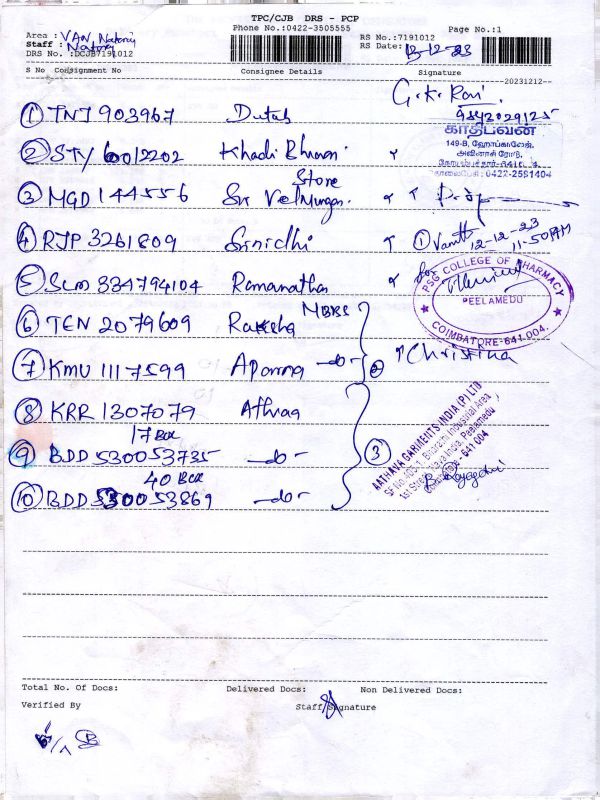 TPC/CJB DRS - PCP
Phone No.:0422-3505555
Page No.:1
Area : VAN, Nataraj
RS No.:7191012
Staff : Nataraj
RS Date: 13-12-23
DRS No. :DCJB7191012
S No Consignment No Consignee Details Signature
20231212--
G.K. Ravi
① TNJ 903967 Dutab 9543029125
காதிபவன்
149-B, ஹோப்காலேஜ்,
அவினாசி ரோடு,
② STY 60012202 Khadi Bhavan
தொலைபேசி : 0422-2591404
Store
③ MGD 144556 Sri Velmurugan
④ RJP 3261809 Srinidhi ① Vanith 12-12-23
11.50AM
⑤ SLM 334794104 Ramanathan for
PSG COLLEGE OF PHARMACY
PEELAMEDU
COIMBATORE-641 004.
⑥ TEN 2079609 Raksha MBBS
⑦ KMU 1117599 Aparna -do- ② Christina
⑧ KRR 1307079 Athvaa
17 Box
⑨ BDD 530053735 -do- ③
AATHAVA GARMENTS INDIA (P) LTD
SF No.405/1, Bharathi Industrial Area,
1st Street, Jaya India, Peelamedu
641 004
40 Box
⑩ BDD 530053869 -do-
Total No. Of Docs: Delivered Docs: Non Delivered Docs:
Verified By Staff Signature